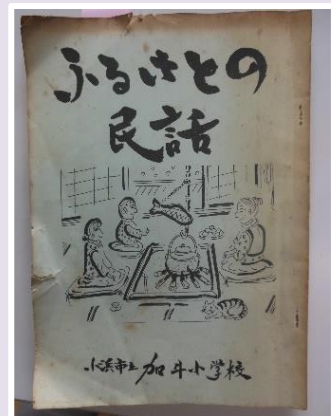 ふるさとの
民話
小浜市立加斗小学校